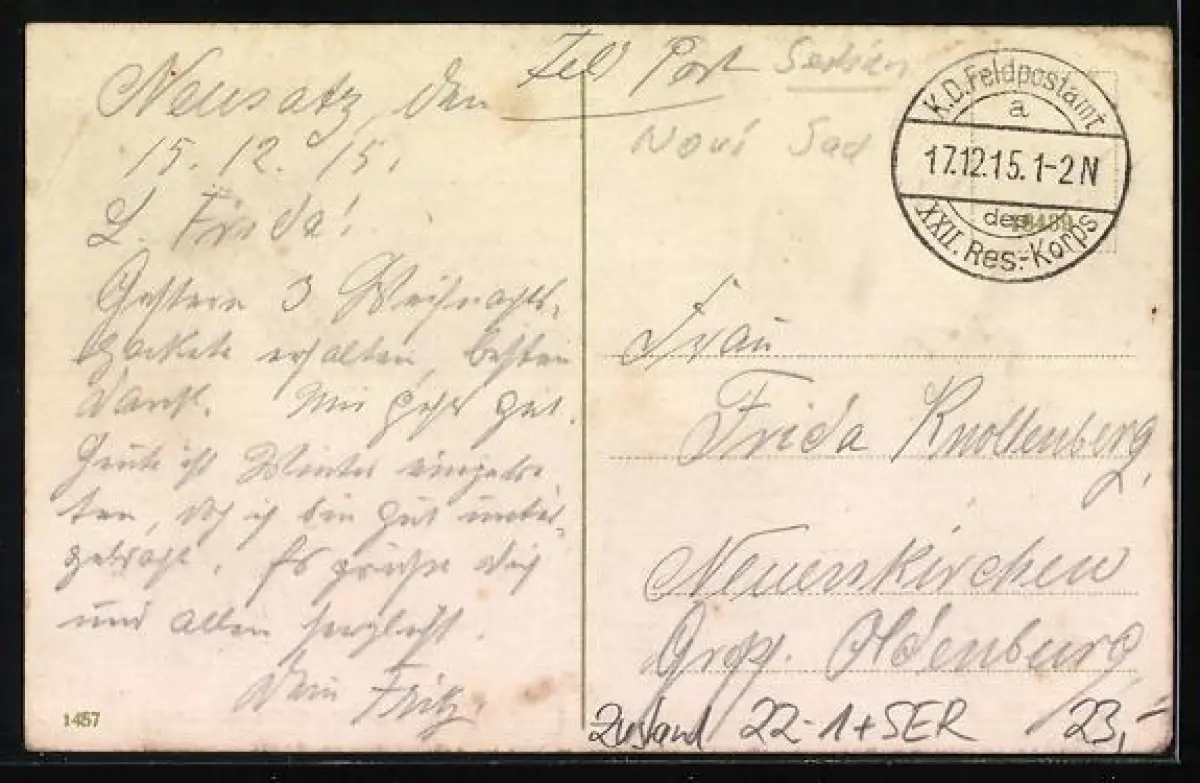 Neusatz, den
15. 12. 15.
L. Frida!
Gestern 3 Weihnachts-
packete erhalten, besten
Dank. Mir geht gut.
Heute ist Winter eingetre-
ten, doch ich bin gut unter-
gebracht. Es grüßt Dich
und allen herzlichst.
Dein Fritz.
1457
Feld Post
Serbien
Novi Sad
K.D. Feldpostamt
a
17.12.15. 1-2 N
des
XXII. Res.-Korps
Frau
Frida Knollenberg,
Neuenkirchen
Oldenburg
Zustand 22-1+SER 23,-